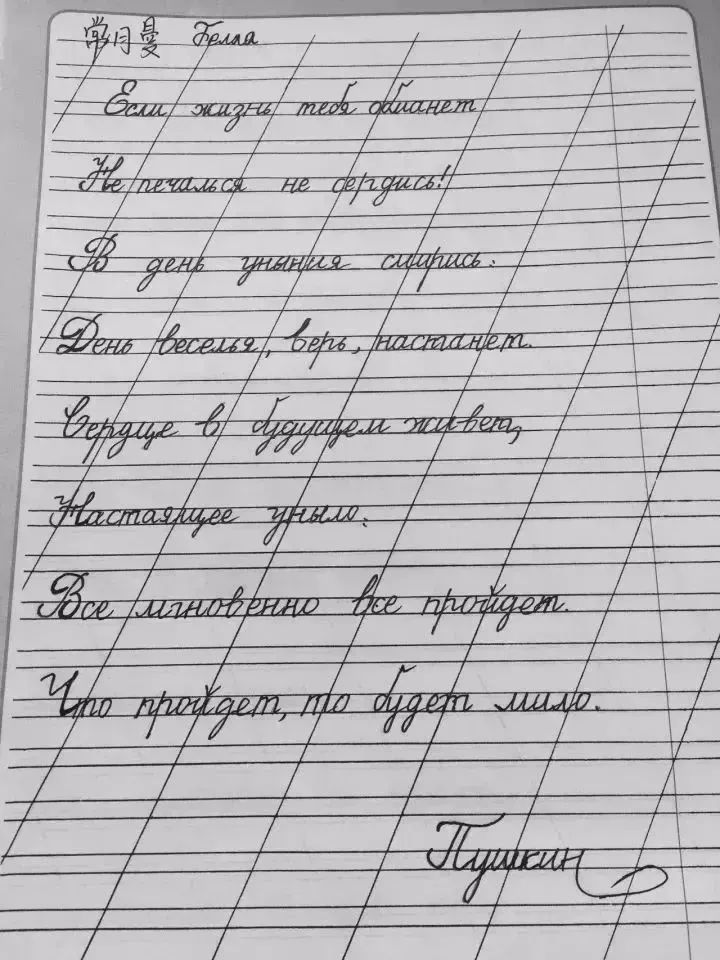 常月曼 Гелла
Если жизнь тебя обманет
Не печалься не сердись!
В день уныния смирись:
День веселья, верь, настанет.
Сердце в будущем живет,
Настаярщее уныло:
Все мгновенно все пройдет.
Что пройдет, то будет мило.
Пушкин